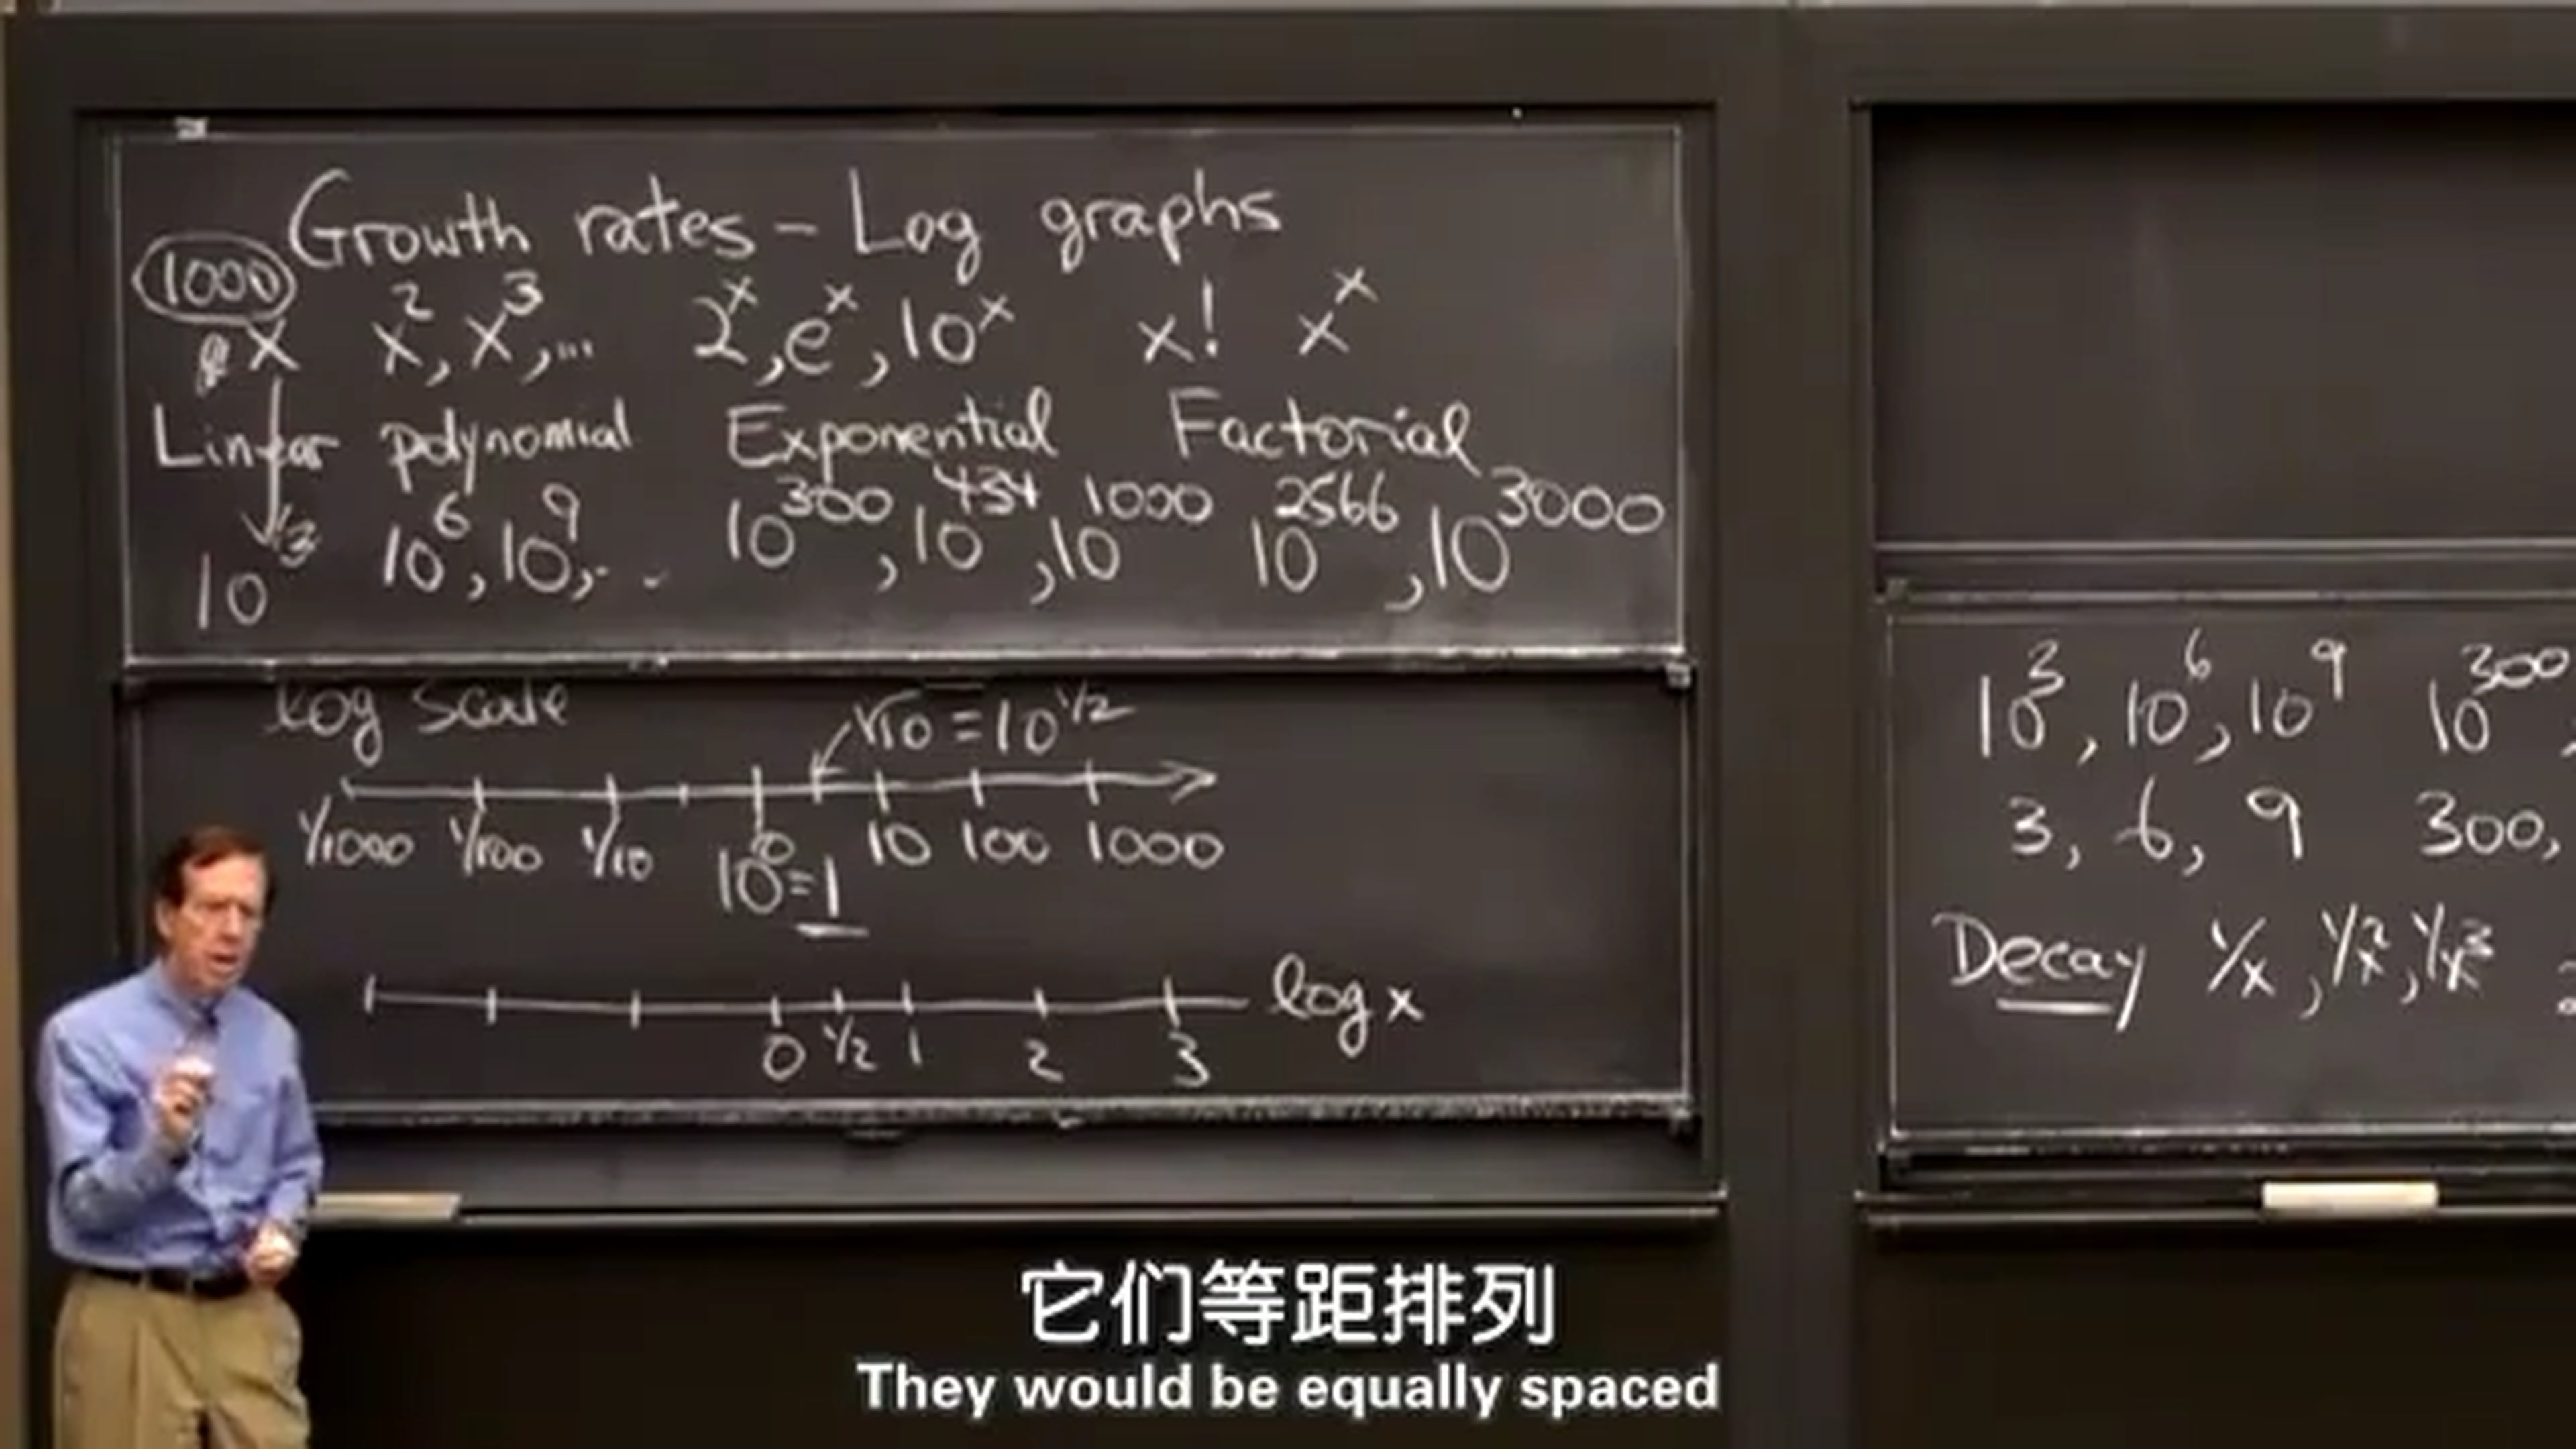 Growth rates - Log graphs
1000
x x², x³, ... 2ˣ, eˣ, 10ˣ x! xˣ
Linear polynomial Exponential Factorial
10³ 10⁶, 10⁹, .. 10³⁰⁰, 10⁴³⁴, 10¹⁰⁰⁰ 10²⁵⁶⁶, 10³⁰⁰⁰
log scale
√10 = 10^1/2
1/1000 1/100 1/10 10⁰=1 10 100 1000
log x
0 1/2 1 2 3
10³, 10⁶, 10⁹ 10³⁰⁰
3, 6, 9 300,
Decay 1/x, 1/x², 1/x³
它们等距排列
They would be equally spaced